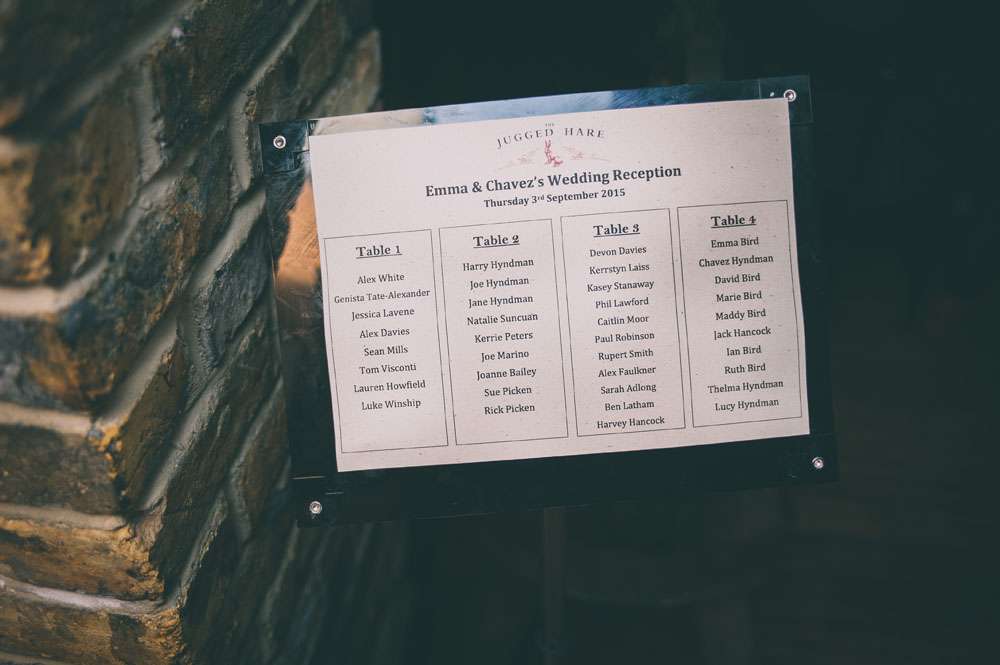 THE
JUGGED HARE
Emma & Chavez's Wedding Reception
Thursday 3rd September 2015
Table 1
Alex White
Genista Tate-Alexander
Jessica Lavene
Alex Davies
Sean Mills
Tom Visconti
Lauren Howfield
Luke Winship
Table 2
Harry Hyndman
Joe Hyndman
Jane Hyndman
Natalie Suncuan
Kerrie Peters
Joe Marino
Joanne Bailey
Sue Picken
Rick Picken
Table 3
Devon Davies
Kerrstyn Laiss
Kasey Stanaway
Phil Lawford
Caitlin Moor
Paul Robinson
Rupert Smith
Alex Faulkner
Sarah Adlong
Ben Latham
Harvey Hancock
Table 4
Emma Bird
Chavez Hyndman
David Bird
Marie Bird
Maddy Bird
Jack Hancock
Ian Bird
Ruth Bird
Thelma Hyndman
Lucy Hyndman